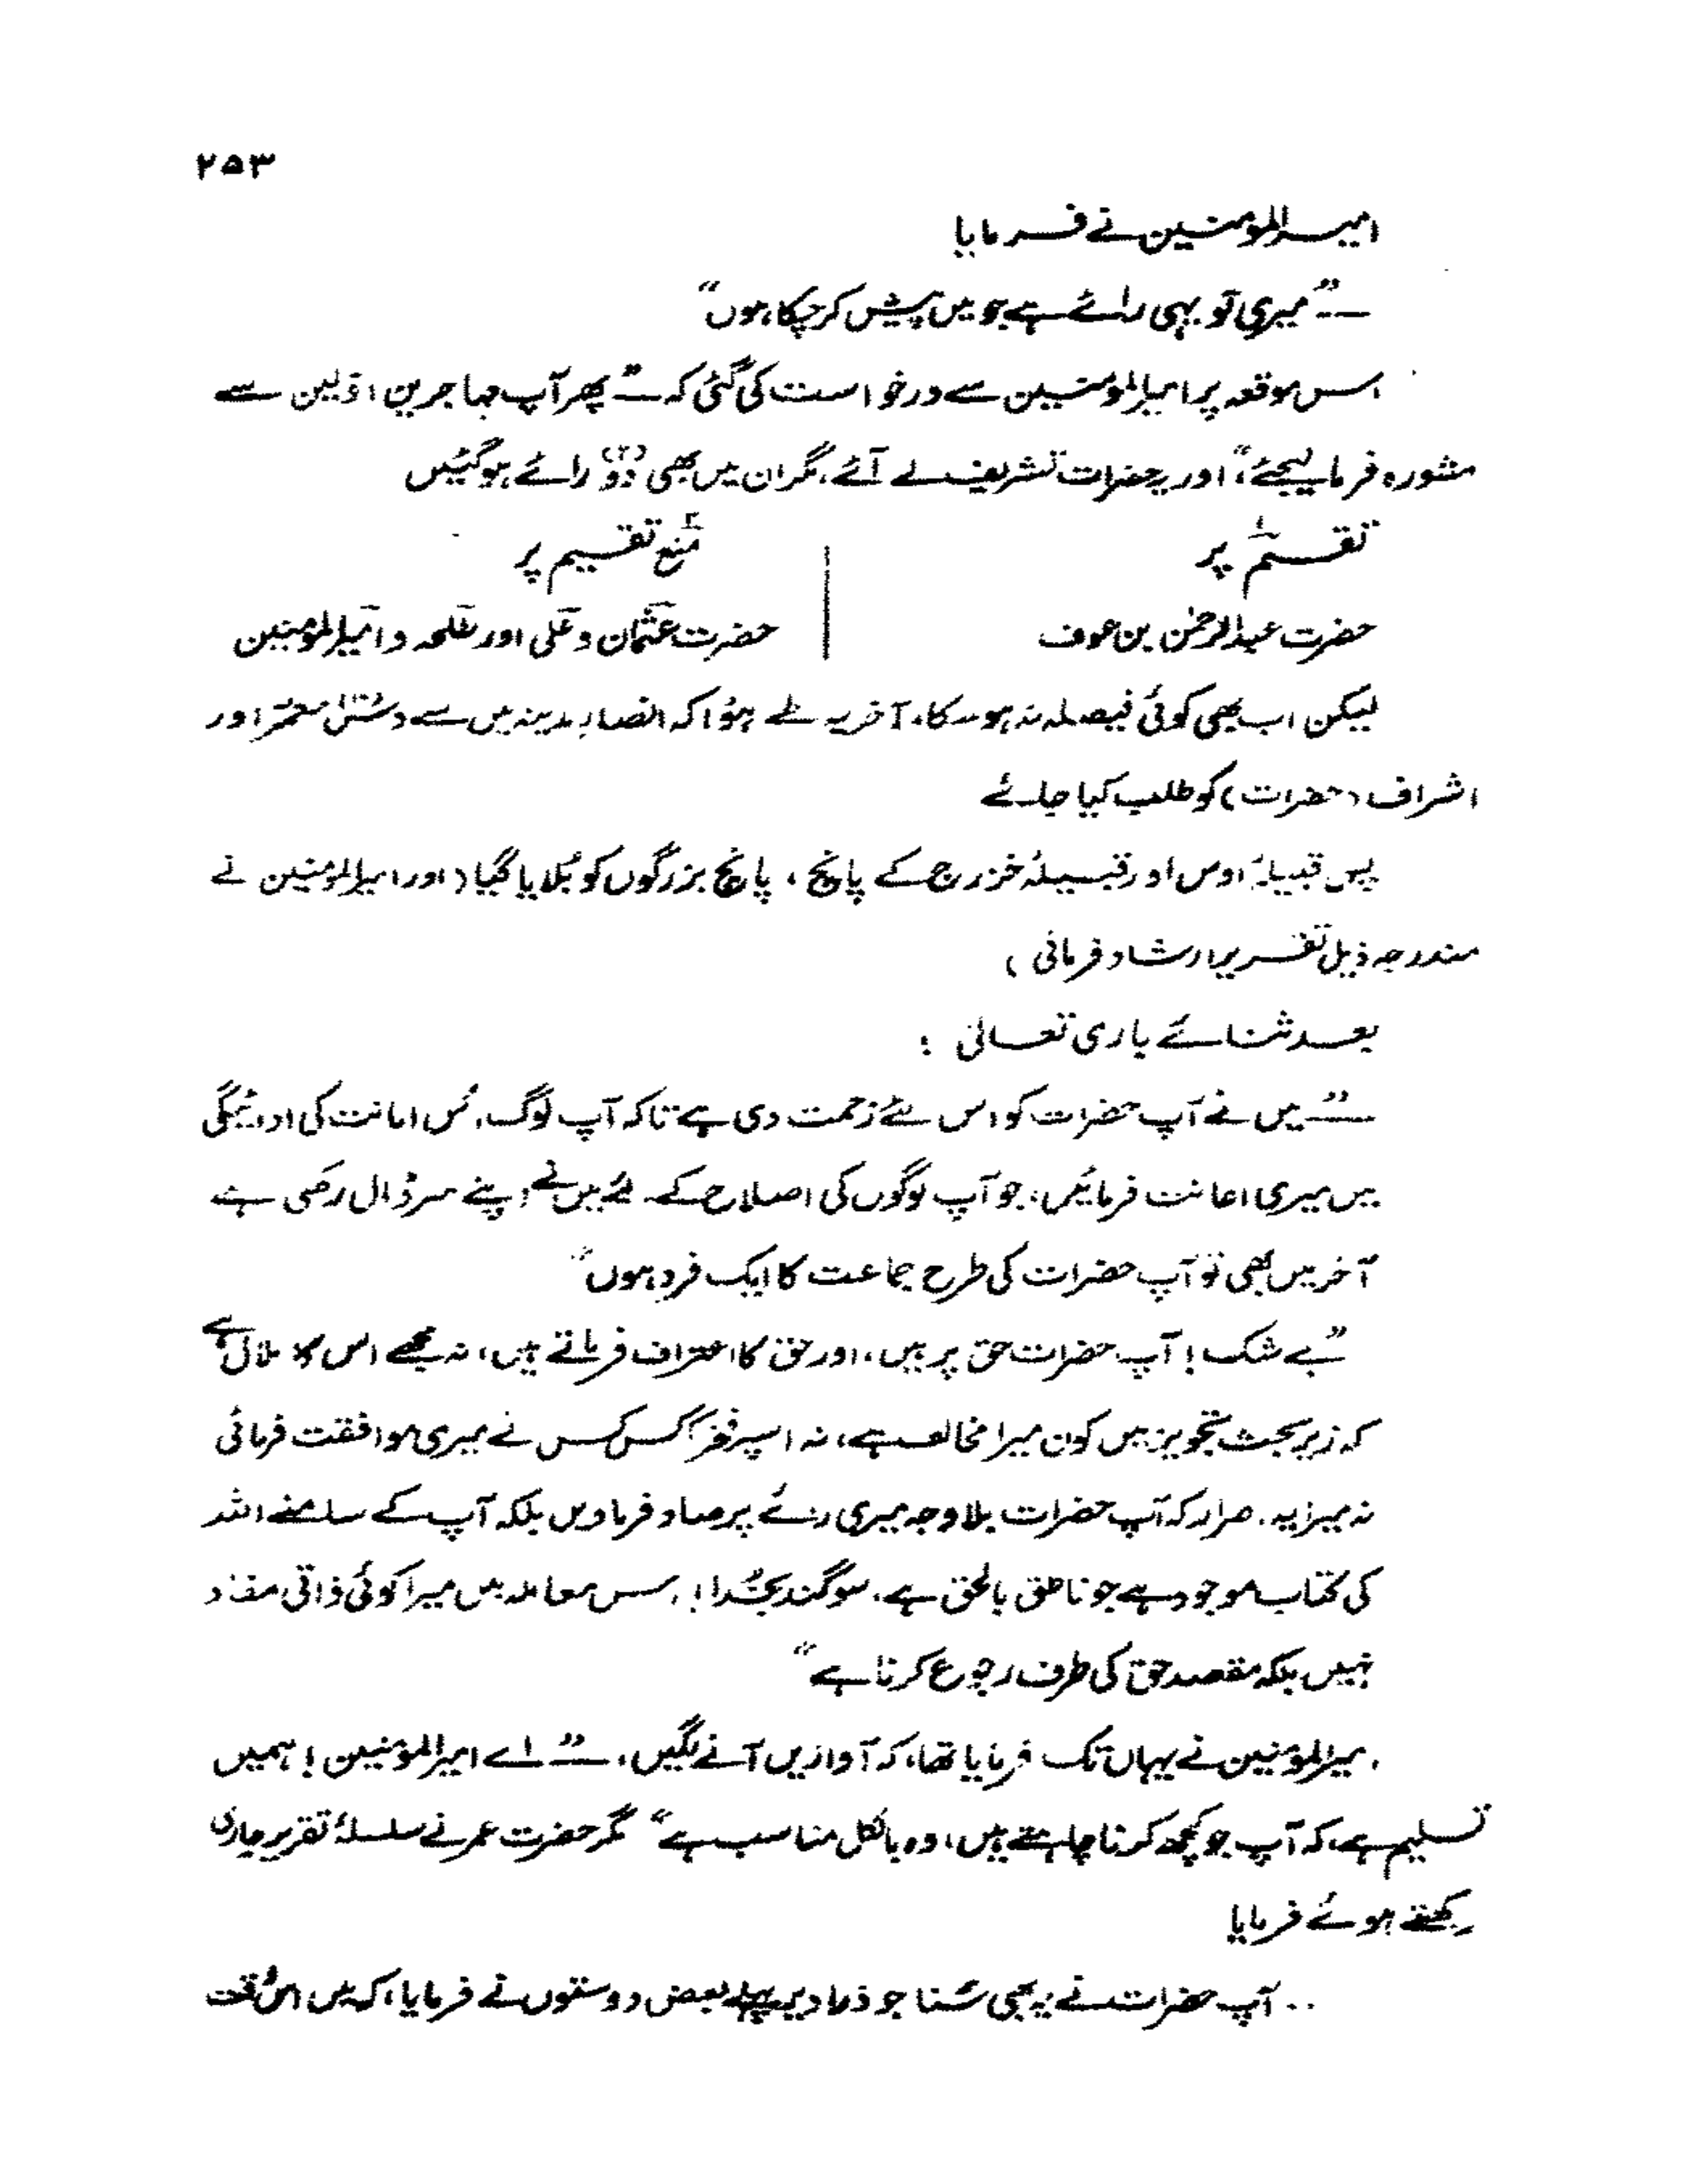 ۲۵۳
امیر المؤمنین نے فرمایا
— "میری تو یہی رائے ہے جو میں پیش کر چکا ہوں"
اس موقعہ پر امیر المؤمنین سے درخواست کی گئی کہ — "پھر آپ مہاجرین اوّلین سے
مشورہ فرما لیجئے"، اور یہ حضرات تشریف لے آئے، مگر ان میں بھی دو (۲) رائے ہو گئیں
تقسیم پر | منع تقسیم پر
حضرت عبدالرحمٰن بن عوف | حضرت عثمان و علی اور طلحہ و امیر المؤمنین
لیکن اب بھی کوئی فیصلہ نہ ہو سکا، آخر یہ طے ہؤا کہ انصار مدینہ میں سے دس معمّر اور
اشراف (حضرات) کو طلب کیا جائے
پس قبیلۂ اوس اور قبیلۂ خزرج کے پانچ، پانچ بزرگوں کو بُلایا گیا (اور امیر المؤمنین نے
مندرجہ ذیل تقریر ارشاد فرمائی)
بعد ثنائے باری تعالیٰ :
— "میں نے آپ حضرات کو اس لئے زحمت دی ہے تاکہ آپ لوگ اُس امانت کی ادائیگی
میں میری اعانت فرمائیں، جو آپ لوگوں کی اصلاح کے لئے میں نے اپنے سر ڈال رکھی ہے
آخر میں بھی تو آپ حضرات کی طرح جماعت کا ایک فرد ہوں"
"بے شک! آپ حضرات حق پر ہیں، اور حق کا اعتراف فرماتے ہیں، نہ مجھے اس کا ملال ہے
کہ زیر بحث تجویز میں کون میرا مخالف ہے، نہ اسپر فخر کہ کس کس نے میری موافقت فرمائی
نہ میرا یہ اصرار کہ آپ حضرات بلا وجہ میری رائے پر صاد فرما دیں بلکہ آپ کے سامنے اللہ
کی کتاب موجود ہے جو ناطق بالحق ہے، سوگند بخُدا! اس معاملہ میں میرا کوئی ذاتی مفاد
نہیں بلکہ مقصد حق کی طرف رجوع کرنا ہے"
امیر المؤمنین نے یہاں تک فرمایا تھا، کہ آوازیں آنے لگیں، — "اے امیر المؤمنین! ہمیں
تسلیم ہے، کہ آپ جو کچھ کرنا چاہتے ہیں، وہ بالکل مناسب ہے" مگر حضرت عمر نے سلسلۂ تقریر جاری
رکھتے ہوئے فرمایا
.. آپ حضرات نے یہ بھی سُنا جو ذرا دیر پہلے بعض دوستوں نے فرمایا، کہ میں اس وقت